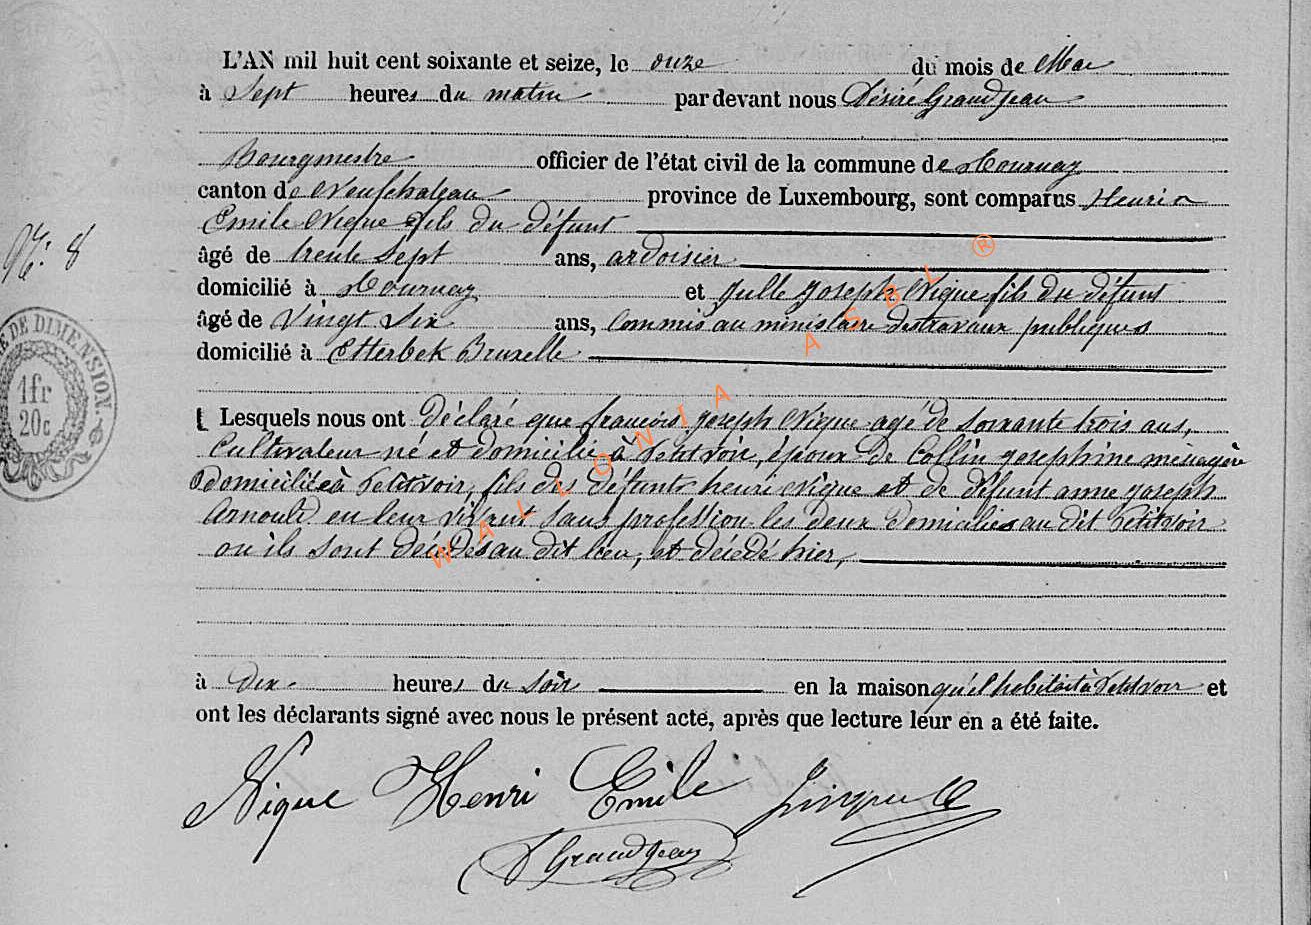 L'AN mil huit cent soixante et seize, le onze du mois de Mai
à Sept heures du matin par devant nous Désiré Grandjean
Bourgmestre officier de l'état civil de la commune de Tournay
canton de Neufchateau province de Luxembourg, sont comparus Henri
Emile Nique fils du défunt
N°: 8
âgé de trente Sept ans, ardoisier
domicilié à Tournay et Julle Joseph Nique fils du défunt
âgé de Vingt Six ans, Commis au ministaire des travaux publiques
domicilié à Etterbek Bruxelle
E DE DIMENSION.
1fr
20c
Lesquels nous ont déclaré que françois Joseph Nique agé de Soixante trois ans,
Cultivateur né et domicilié à Petitvoir, époux de Collin Josephine ménagère
domiciliée à Petitvoir, fils des défunts henri Nique et de défunt anne Joseph
Arnould en leur vivant Sans profession les deux domiciliés au dit Petitvoir
ou ils sont décédés au dit lieu, et décédé hier,
à Dix heures du Soir en la maison qu'el habitait à Petitvoir et
ont les déclarants signé avec nous le présent acte, après que lecture leur en a été faite.
Nique Henri Emile
D Grandjean
WALLONIA ASBL ®